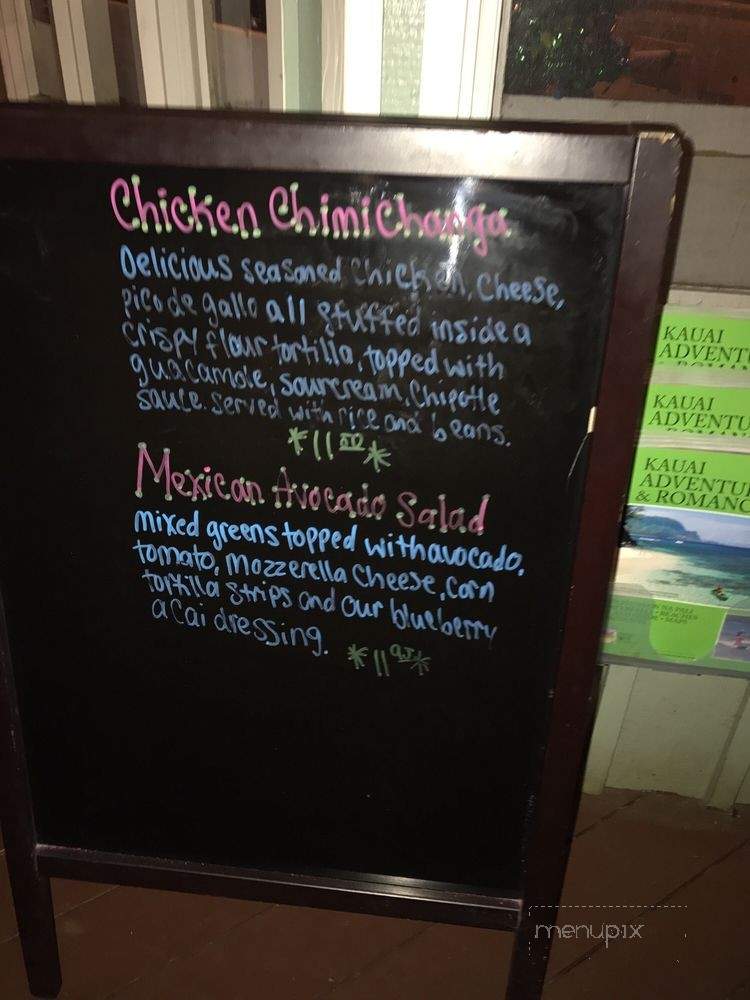 Chicken Chimichanga
Delicious seasoned Chicken, Cheese,
pico de gallo all stuffed inside a
crispy flour tortilla, topped with
guacamole, sourcream, Chipotle
sauce. Served with rice and beans.
Mexican Avocado Salad
mixed greens topped with avocado,
tomato, Mozzerella Cheese, Corn
tortilla strips and our blueberry
acai dressing.
*11 95*
KAUAI
ADVENTU
KAUAI
ADVENTU
KAUAI
ADVENTU
& ROMANC
menupix